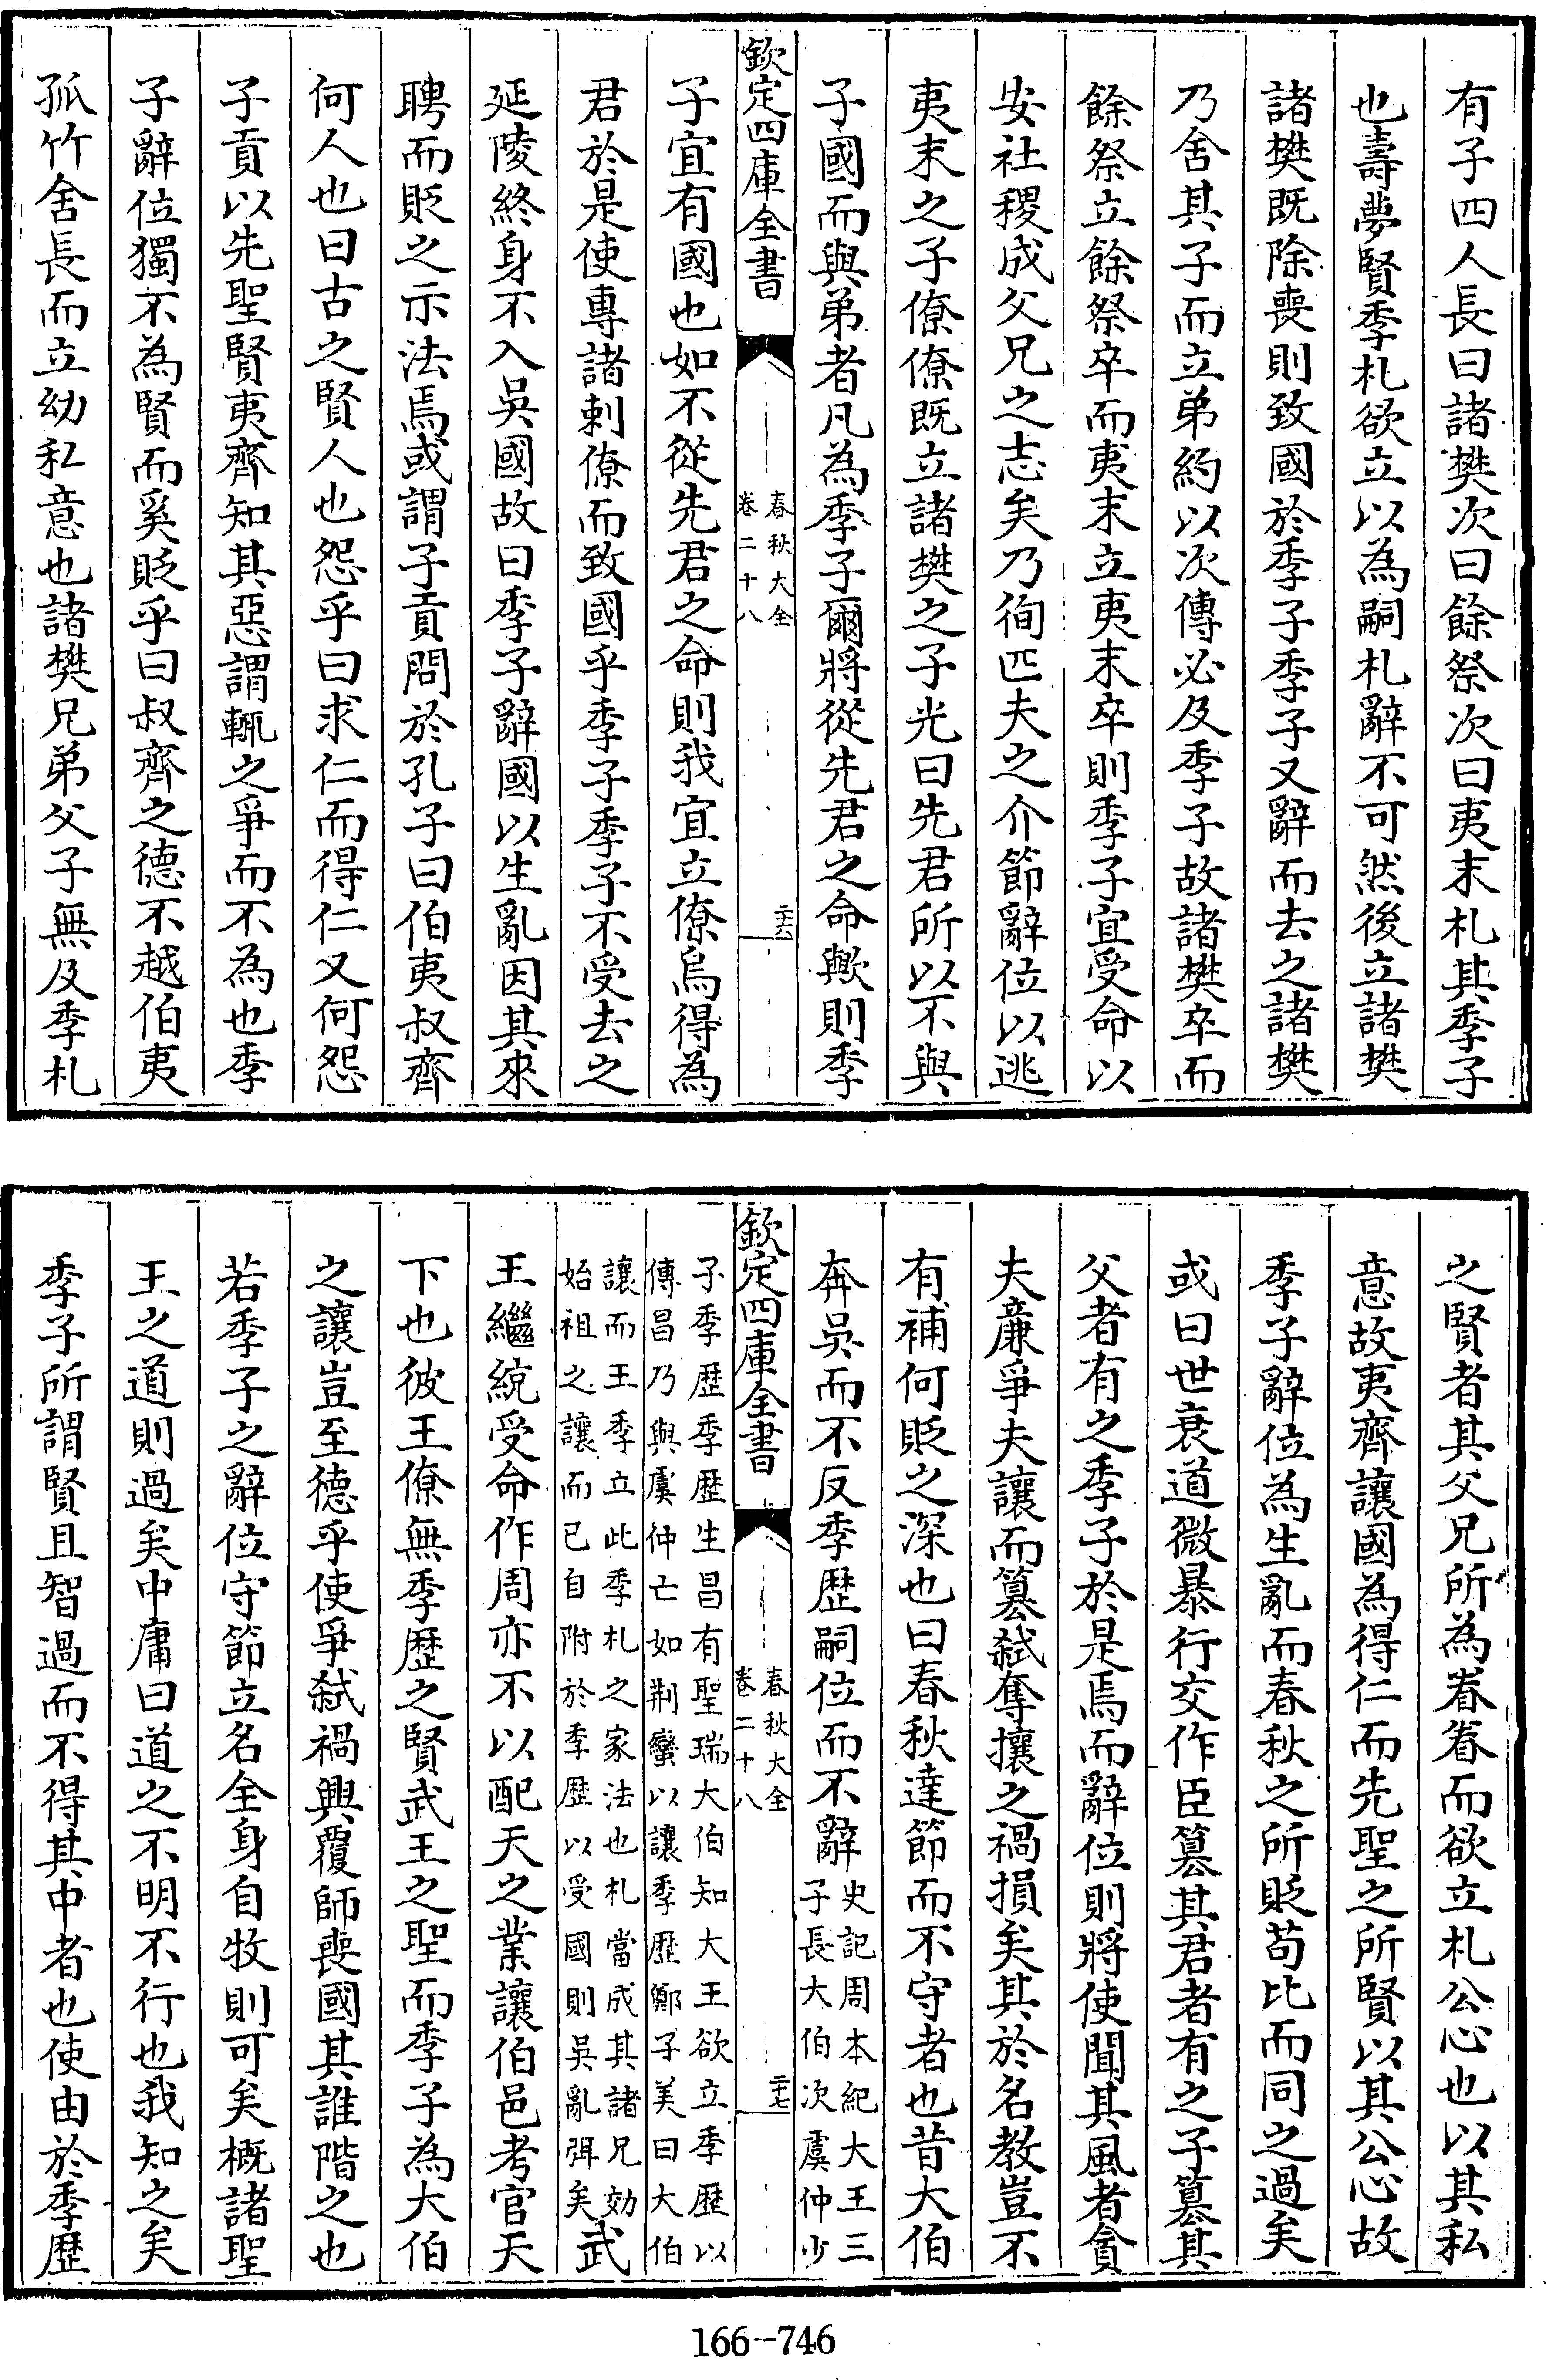 有子四人長曰諸樊次曰餘祭次曰夷末札其季子
也壽夢賢季札欲立以為嗣札辭不可然後立諸樊
諸樊既除喪則致國於季子季子又辭而去之諸樊
乃舍其子而立弟約以次傳必及季子故諸樊卒而
餘祭立餘祭卒而夷末立夷末卒則季子宜受命以
安社稷成父兄之志矣乃徇匹夫之介節辭位以逃
夷末之子僚僚既立諸樊之子光曰先君所以不與
子國而與弟者凡為季子爾將從先君之命歟則季
欽定四庫全書
春秋大全
卷二十八
二十六
子宜有國也如不從先君之命則我宜立僚烏得為
君於是使專諸刺僚而致國乎季子季子不受去之
延陵終身不入吳國故曰季子辭國以生亂因其來
聘而貶之示法焉或謂子貢問於孔子曰伯夷叔齊
何人也曰古之賢人也怨乎曰求仁而得仁又何怨
子貢以先聖賢夷齊知其惡謂輒之爭而不為也季
子辭位獨不為賢而奚貶乎曰叔齊之德不越伯夷
孤竹舍長而立幼私意也諸樊兄弟父子無及季札
之賢者其父兄所為眷眷而欲立札公心也以其私
意故夷齊讓國為得仁而先聖之所賢以其公心故
季子辭位為生亂而春秋之所貶苟比而同之過矣
或曰世衰道微暴行交作臣篡其君者有之子篡其
父者有之季子於是焉而辭位則將使聞其風者貪
夫廉爭夫讓而篡弑奪攘之禍損矣其於名教豈不
有補何貶之深也曰春秋達節而不守者也昔大伯
奔吳而不反季歷嗣位而不辭史記周本紀大王三
子長大伯次虞仲少
欽定四庫全書
春秋大全
卷二十八
二十七
子季歷季歷生昌有聖瑞大伯知大王欲立季歷以
傳昌乃與虞仲亡如荆蠻以讓季歷鄭子美曰大伯
讓而王季立此季札之家法也札當成其諸兄効
始祖之讓而已自附於季歷以受國則吳亂弭矣武
王繼統受命作周亦不以配天之業讓伯邑考官天
下也彼王僚無季歷之賢武王之聖而季子為大伯
之讓豈至德乎使爭弑禍興覆師喪國其誰階之也
若季子之辭位守節立名全身自牧則可矣概諸聖
王之道則過矣中庸曰道之不明不行也我知之矣
季子所謂賢且智過而不得其中者也使由於季歷
166-746